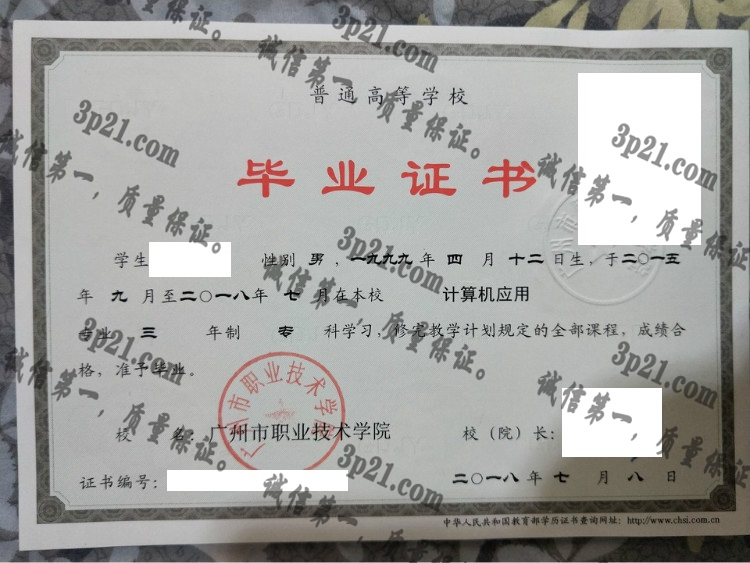 普通高等学校
毕业证书
学生 性别 男，一九九九年 四 月 十二 日生，于二〇一五
年 九 月至二〇一八年 七 月在本校 计算机应用
专业 三 年制 专 科学习，修完教学计划规定的全部课程，成绩合
格，准予毕业。
广州市职业技术学院
校 名：广州市职业技术学院 校（院）长：
证书编号： 二〇一八 年 七 月 八 日
中华人民共和国教育部学历证书查询网址：http://www.chsi.com.cn
3p21.com
诚信第一，质量保证。
3p21.com
诚信第一，质量保证。
3p21.com
诚信第一，质量保证。
3p21.com
诚信第一，质量保证。
3p21.com
诚信第一，质量保证。
3p21.com
诚信第一，质量保证。
3p21.com
诚信第一，质量保证。